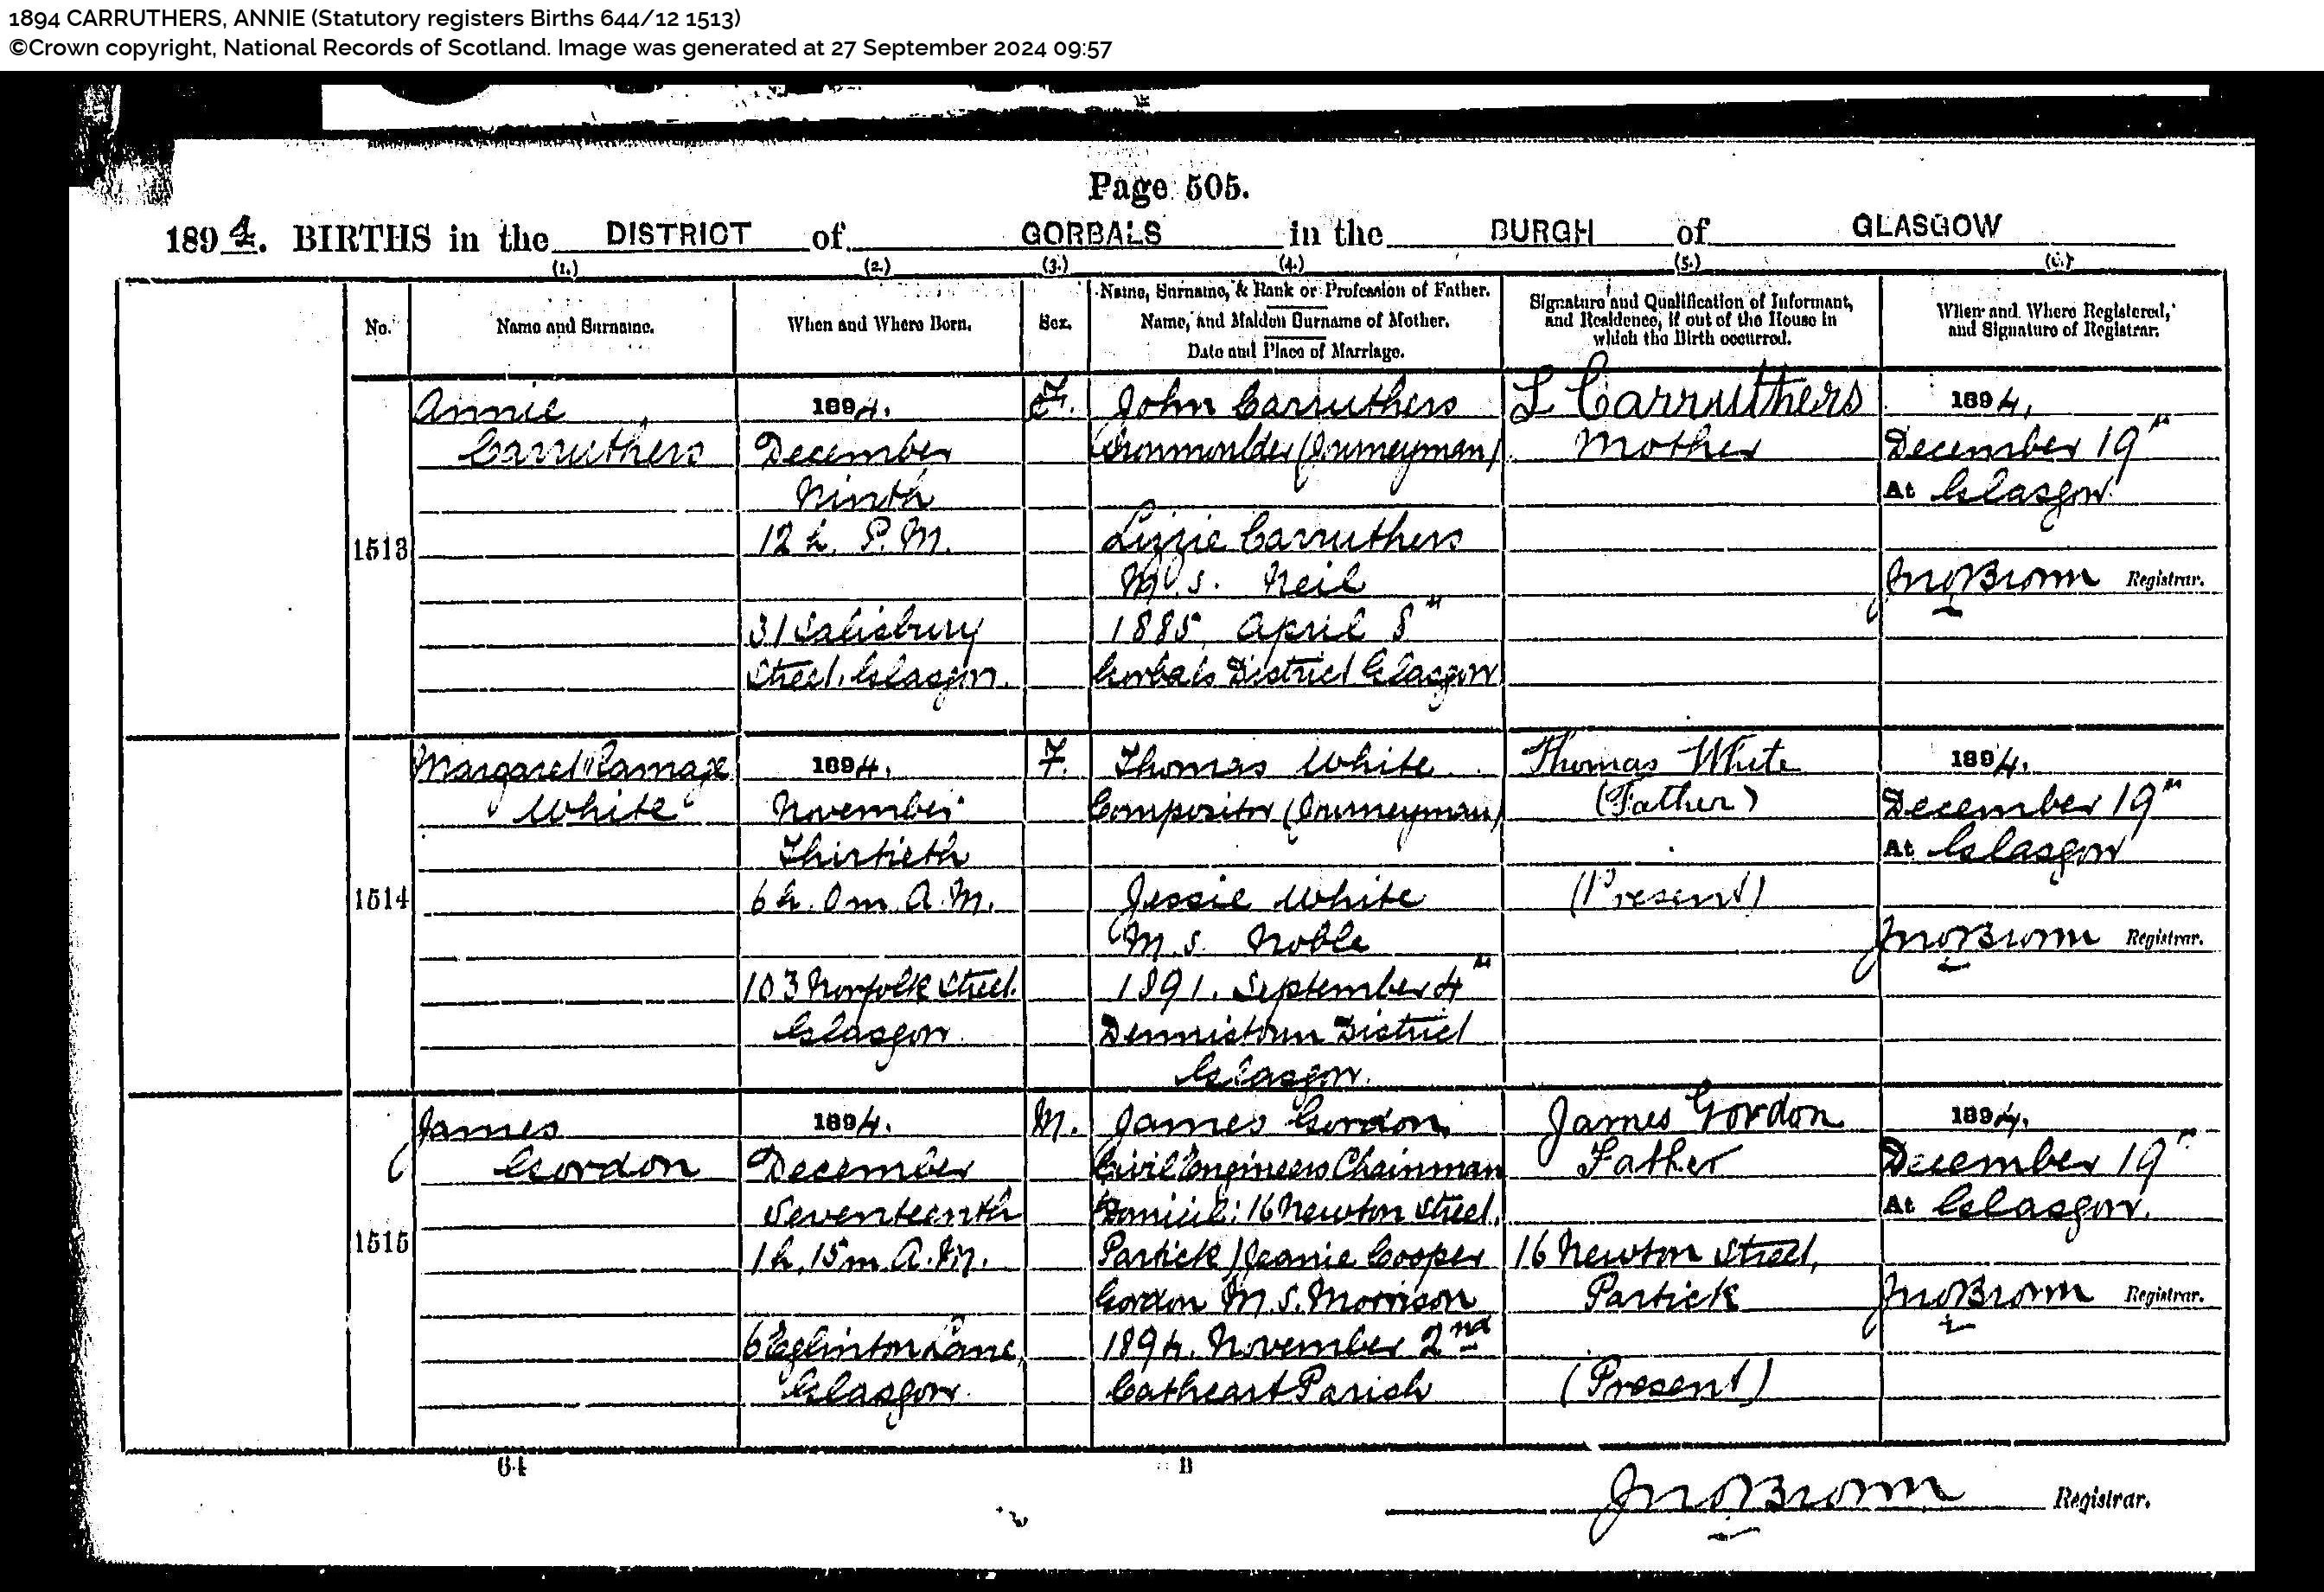 1894 CARRUTHERS, ANNIE (Statutory registers Births 644/12 1513)
©Crown copyright, National Records of Scotland. Image was generated at 27 September 2024 09:57
Page 505.
1894. BIRTHS in the DISTRICT of GORBALS in the BURGH of GLASGOW
(1.) (2.) (3.) (4.) (5.) (6.)
No.
Name and Surname.
When and Where Born.
Sex.
Name, Surname, & Rank or Profession of Father.
Name, and Maiden Surname of Mother.
Date and Place of Marriage.
Signature and Qualification of Informant,
and Residence, if out of the House in
which the Birth occurred.
When and Where Registered,
and Signature of Registrar.
1513
Annie
Carruthers
1894.
December
Ninth
12 h. P.M.
31 Salisbury
Street. Glasgow.
F.
John Carruthers
Ironmoulder (Journeyman)
Lizzie Carruthers
M.S. Neil
1885, April 8"
Gorbals District Glasgow
L Carruthers
Mother
1894,
December 19"
At Glasgow.
Jno Brown Registrar.
1514
Margaret Ramage
White
1894.
November
Thirtieth
6 h. 0 m. A.M.
103 Norfolk Street.
Glasgow.
F.
Thomas White
Compositor (Journeyman)
Jessie White
M.S. Noble
1891. September 4"
Dennistoun District
Glasgow.
Thomas White
(Father)
(Present)
1894.
December 19"
At Glasgow
Jno Brown Registrar.
1515
James
Gordon
1894.
December
Seventeenth
1 h. 15 m. A.M.
6 Eglinton Lane,
Glasgow.
M.
James Gordon
Civil Engineers Chainman
Domicil: 16 Newton Street,
Partick / Jeanie Cooper
Gordon M.S. Morrison
1894. November 2nd
Cathcart Parish
James Gordon
Father
16 Newton Street,
Partick
(Present)
1894.
December 19"
At Glasgow.
Jno Brown Registrar.
64 B
Jno Brown Registrar.